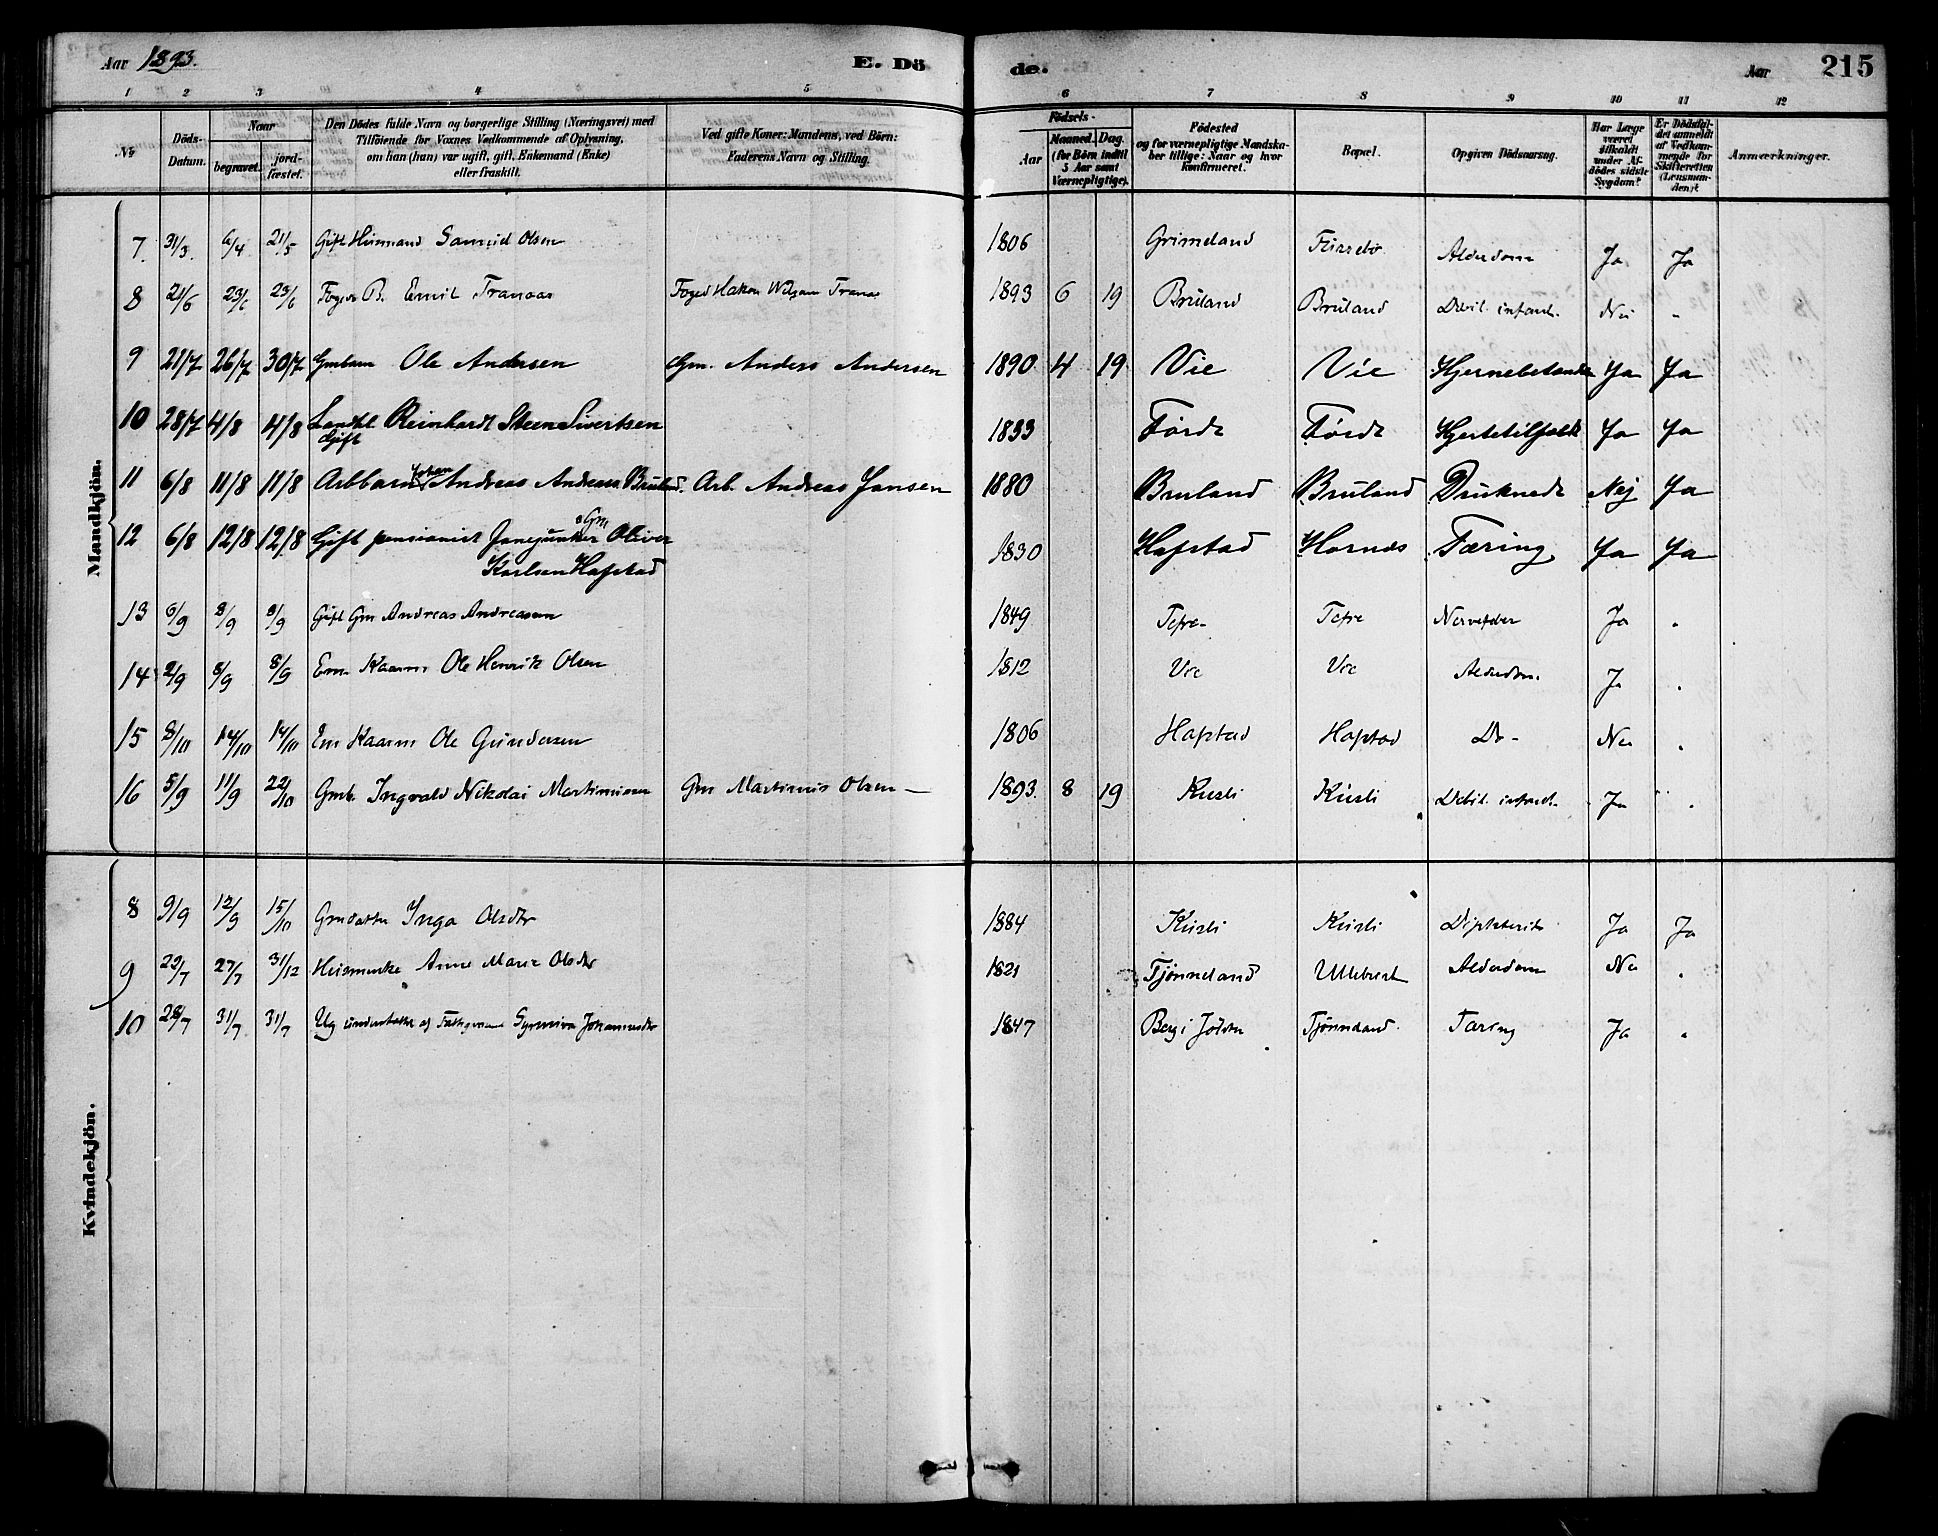 Aar 1893.
E. Dö
de.
Aar
215
1 2 3 4 5 6 7 8 9 10 11 12
No
Döds-Datum.
Naar
begravet.
jord-fæstet.
Den Dödes fulde Navn og borgerlige Stilling (Næringsvei) med
Tilföiende for Voxnes Vedkommende af Oplysning,
om han (hun) var ugift, gift, Enkemand (Enke)
eller fraskilt.
Ved gifte Koner: Mandens, ved Börn:
Faderens Navn og Stilling.
Födsels-
Aar
Maaned. Dag.
(for Börn indtil
5 Aar samt
Værnepligtige).
Födested
og for værnepligtige Mandska-
ber tillige: Naar og hvor
konfirmeret.
Bopæl.
Opgiven Dödsaarsag.
Har Læge
været
tilkaldt
under Af-
dödes sidste
Sygdom?
Er Dödsfal-
det anmeldt
af Vedkom-
mende for
Skifteretten
(Lensman-
den)?
Anmærkninger.
Mandkjön.
7. 31/3. 6/4 21/5 Gift Husmand Samuel Olsen 1806 Grimeland Alderdom Ja Ja
8 21/6 23/6 23/6 Fogds B. Emil Tranaas Foged Hakon Tranaas 1893 6 19 Bruland Bruland Debil. infant. Nei "
9 21/7 26/7 30/7 Gmbarn Ole Andersen Gm. Anders Andersen 1890 4 19 Vie Vie Hjernebetændelse Ja Ja
10 28/7 4/8 4/8 Landhl Reinhardt Steen Sivertsen 1833 Förde Förde Hjertetilfælde Ja Ja
Gift
11 6/8 11/8 11/8 Arbbarn Johan Andreas Andersen Bruland. Arb. Andreas Jansen 1880 Bruland Bruland Druknede Nej Ja
12 6/8 12/8 12/8 Gift pensionist Fanejunker o Gm Oliver 1830 Hafstad Hornes Tæring. Ja Ja
Karlsen Hafstad
13 6/9 8/9 8/9 Gift Gm Andreas Andreassen 1849 Tefre Tefre Nervefeber Ja "
14 2/9 8/9 8/9 Em. Kaarm Ole Henrik Olsen 1812 Vie Vie Alderdom. Ja "
15 8/10 14/10 14/10 Em Kaarm Ole Gundersen 1806 Hafstad Hafstad Do - Nei "
16 5/9 11/9 22/10 Gmb. Ingvald Nikolai Martinusen Gm Martinus Olsen — 1893. 8 19 Kusli Kusli Debil. infant. Ja "
Kvindekjön.
8 9/9 12/9 15/10 Gmdatter Inga Olsdtr 1884 Kusli Kusli Diphterit Ja Ja
9 22/7 27/7 31/12 Husmenke Anne Marie Olsdtr 1821 Tjönneland Alderdom Nei "
10 28/7 31/7 31/7 Ug understøttet af Fattigvæsenet Synneva Johannesdtr 1847 Berg i Jölster Tjönneland Tæring Ja "